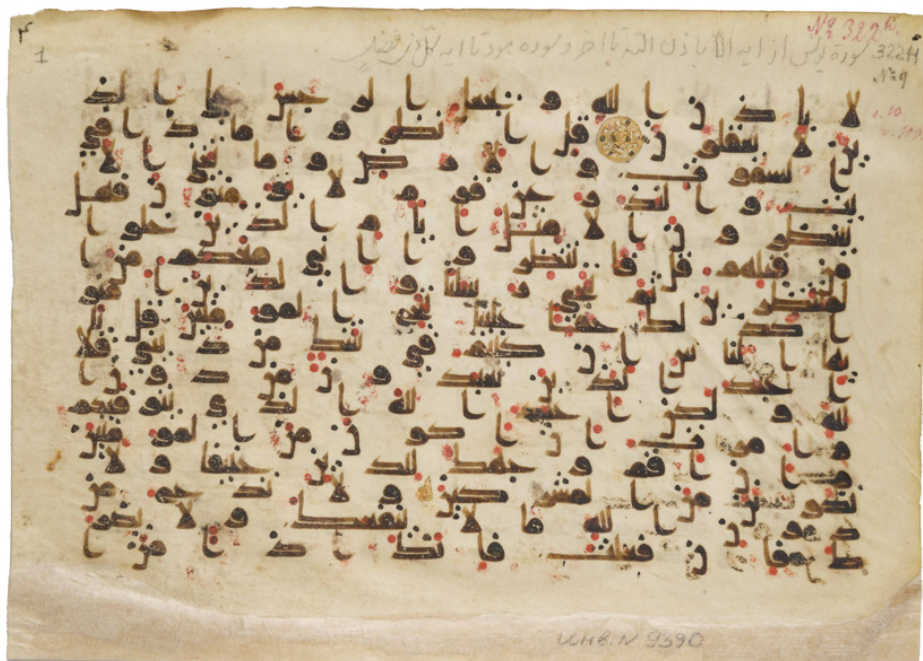 № 322h
322H
№ 9
1
سورة يونس از ايه الا باذن الله تا اخر و سوره هود تا ايه
لا باذن الله ويجعل الرجس على الذ
ين لا يعقلون قل انظروا ماذا في
السموت والارض وما تغني الا
يت والنذر عن قوم لا يومنون فهل
ينتظرون الا مثل ايام الذين خلوا
من قبلهم قل فانتظروا اني معكم من ا
لمنتظرين ثم ننجي رسلنا والذين امنو
ا كذلك حقا علينا ننج المومنين قل يا
يها الناس ان كنتم في شك من ديني فلا
اعبد الذين تعبدون من دون ا
لله ولكن اعبد الله الذي يتوفيكم
وامرت ان اكون من المومنين
وان اقم وجهك للدين حنيفا ولا
تكونن من المشركين ولا تدع من
دون الله ما لا ينفعك ولا يضر
ك فان فعلت فانك اذا من ا
9390